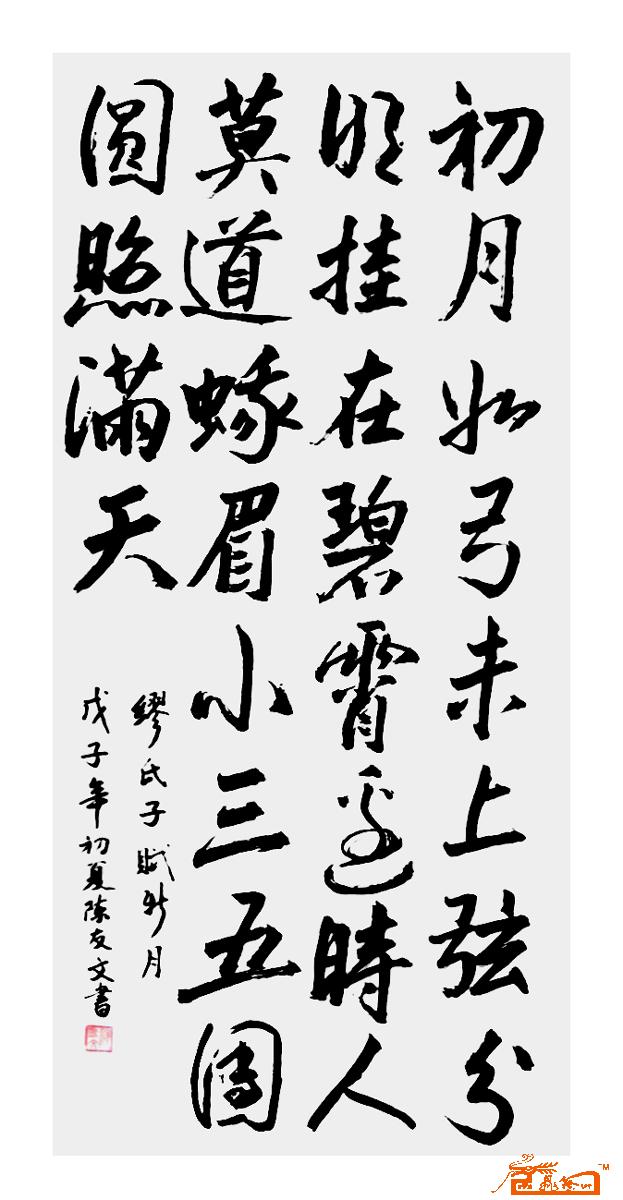 初月如弓未上弦分
明挂在碧霄边時人
莫道蛾眉小三五團
圓照滿天
繆氏子賦新月
戊子年初夏陳友文書